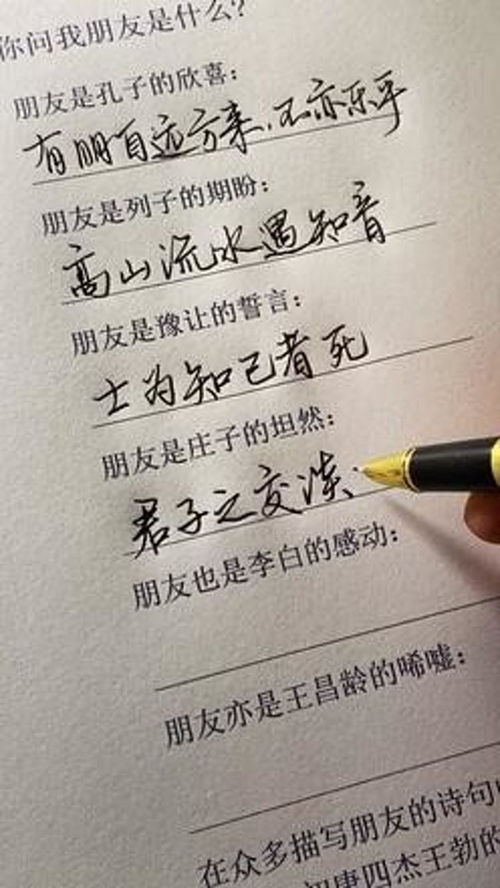 你问我朋友是什么?
朋友是孔子的欣喜:
有朋自远方来,不亦乐乎
朋友是列子的期盼:
高山流水遇知音
朋友是豫让的誓言:
士为知己者死
朋友是庄子的坦然:
君子之交淡
朋友也是李白的感动:
朋友亦是王昌龄的唏嘘:
在众多描写朋友的诗句
初唐四杰王勃的